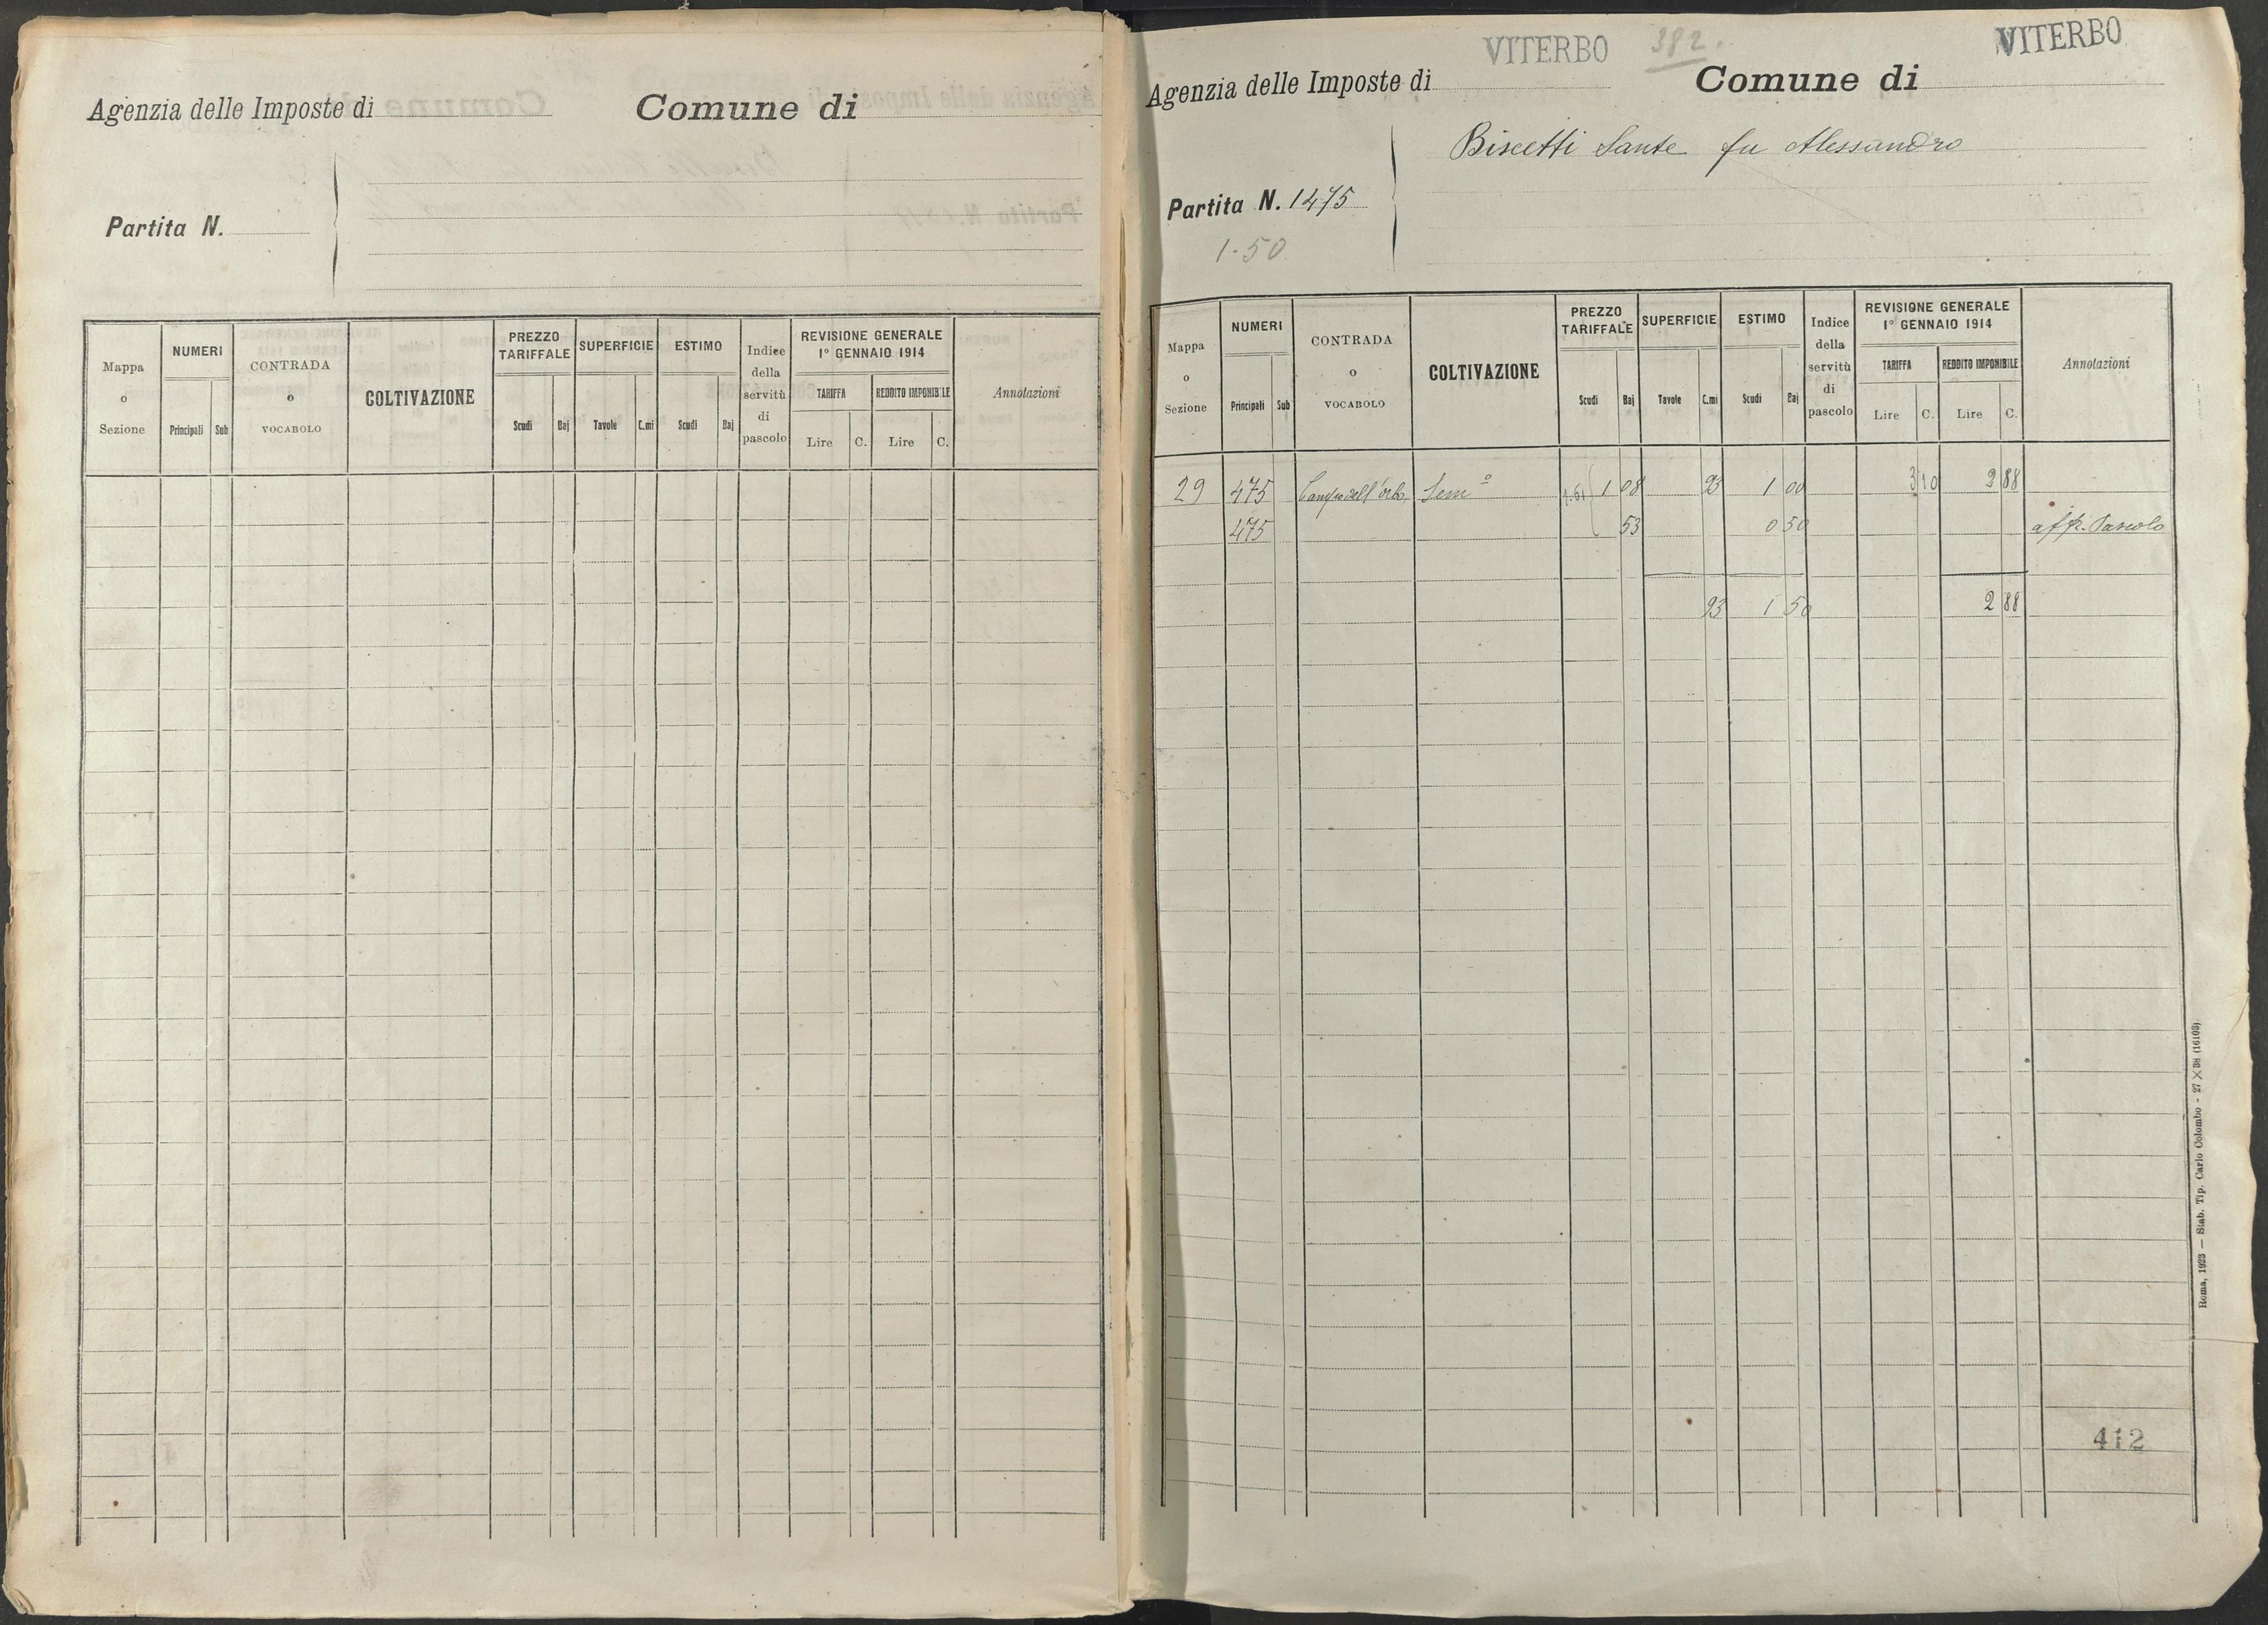 Agenzia delle Imposte di Comune di
Partita N.
Mappa o Sezione
NUMERI
Principali Sub
CONTRADA o VOCABOLO
COLTIVAZIONE
PREZZO TARIFFALE
Scudi Baj
SUPERFICIE
Tavole C.mi
ESTIMO
Scudi Baj
Indice della servitù di pascolo
REVISIONE GENERALE
1° GENNAIO 1914
TARIFFA REDDITO IMPONIBILE
Lire C. Lire C.
Annotazioni
VITERBO 382. VITERBO
Agenzia delle Imposte di Comune di
Biscetti Sante fu Alessandro
Partita N. 1475
1-50
Mappa o Sezione
NUMERI
Principali Sub
CONTRADA o VOCABOLO
COLTIVAZIONE
PREZZO TARIFFALE
Scudi Baj
SUPERFICIE
Tavole C.mi
ESTIMO
Scudi Baj
Indice della servitù di pascolo
REVISIONE GENERALE
1° GENNAIO 1914
TARIFFA REDDITO IMPONIBILE
Lire C. Lire C.
Annotazioni
29 475 Sem° 1.61 1 08 93 1 00 3 10 2 88
475 53 0 50 affr. Pascolo
93 1 50 2 88
Roma, 1923 — Stab. Tip. Carlo Colombo - 27 × 38 (16103)
412